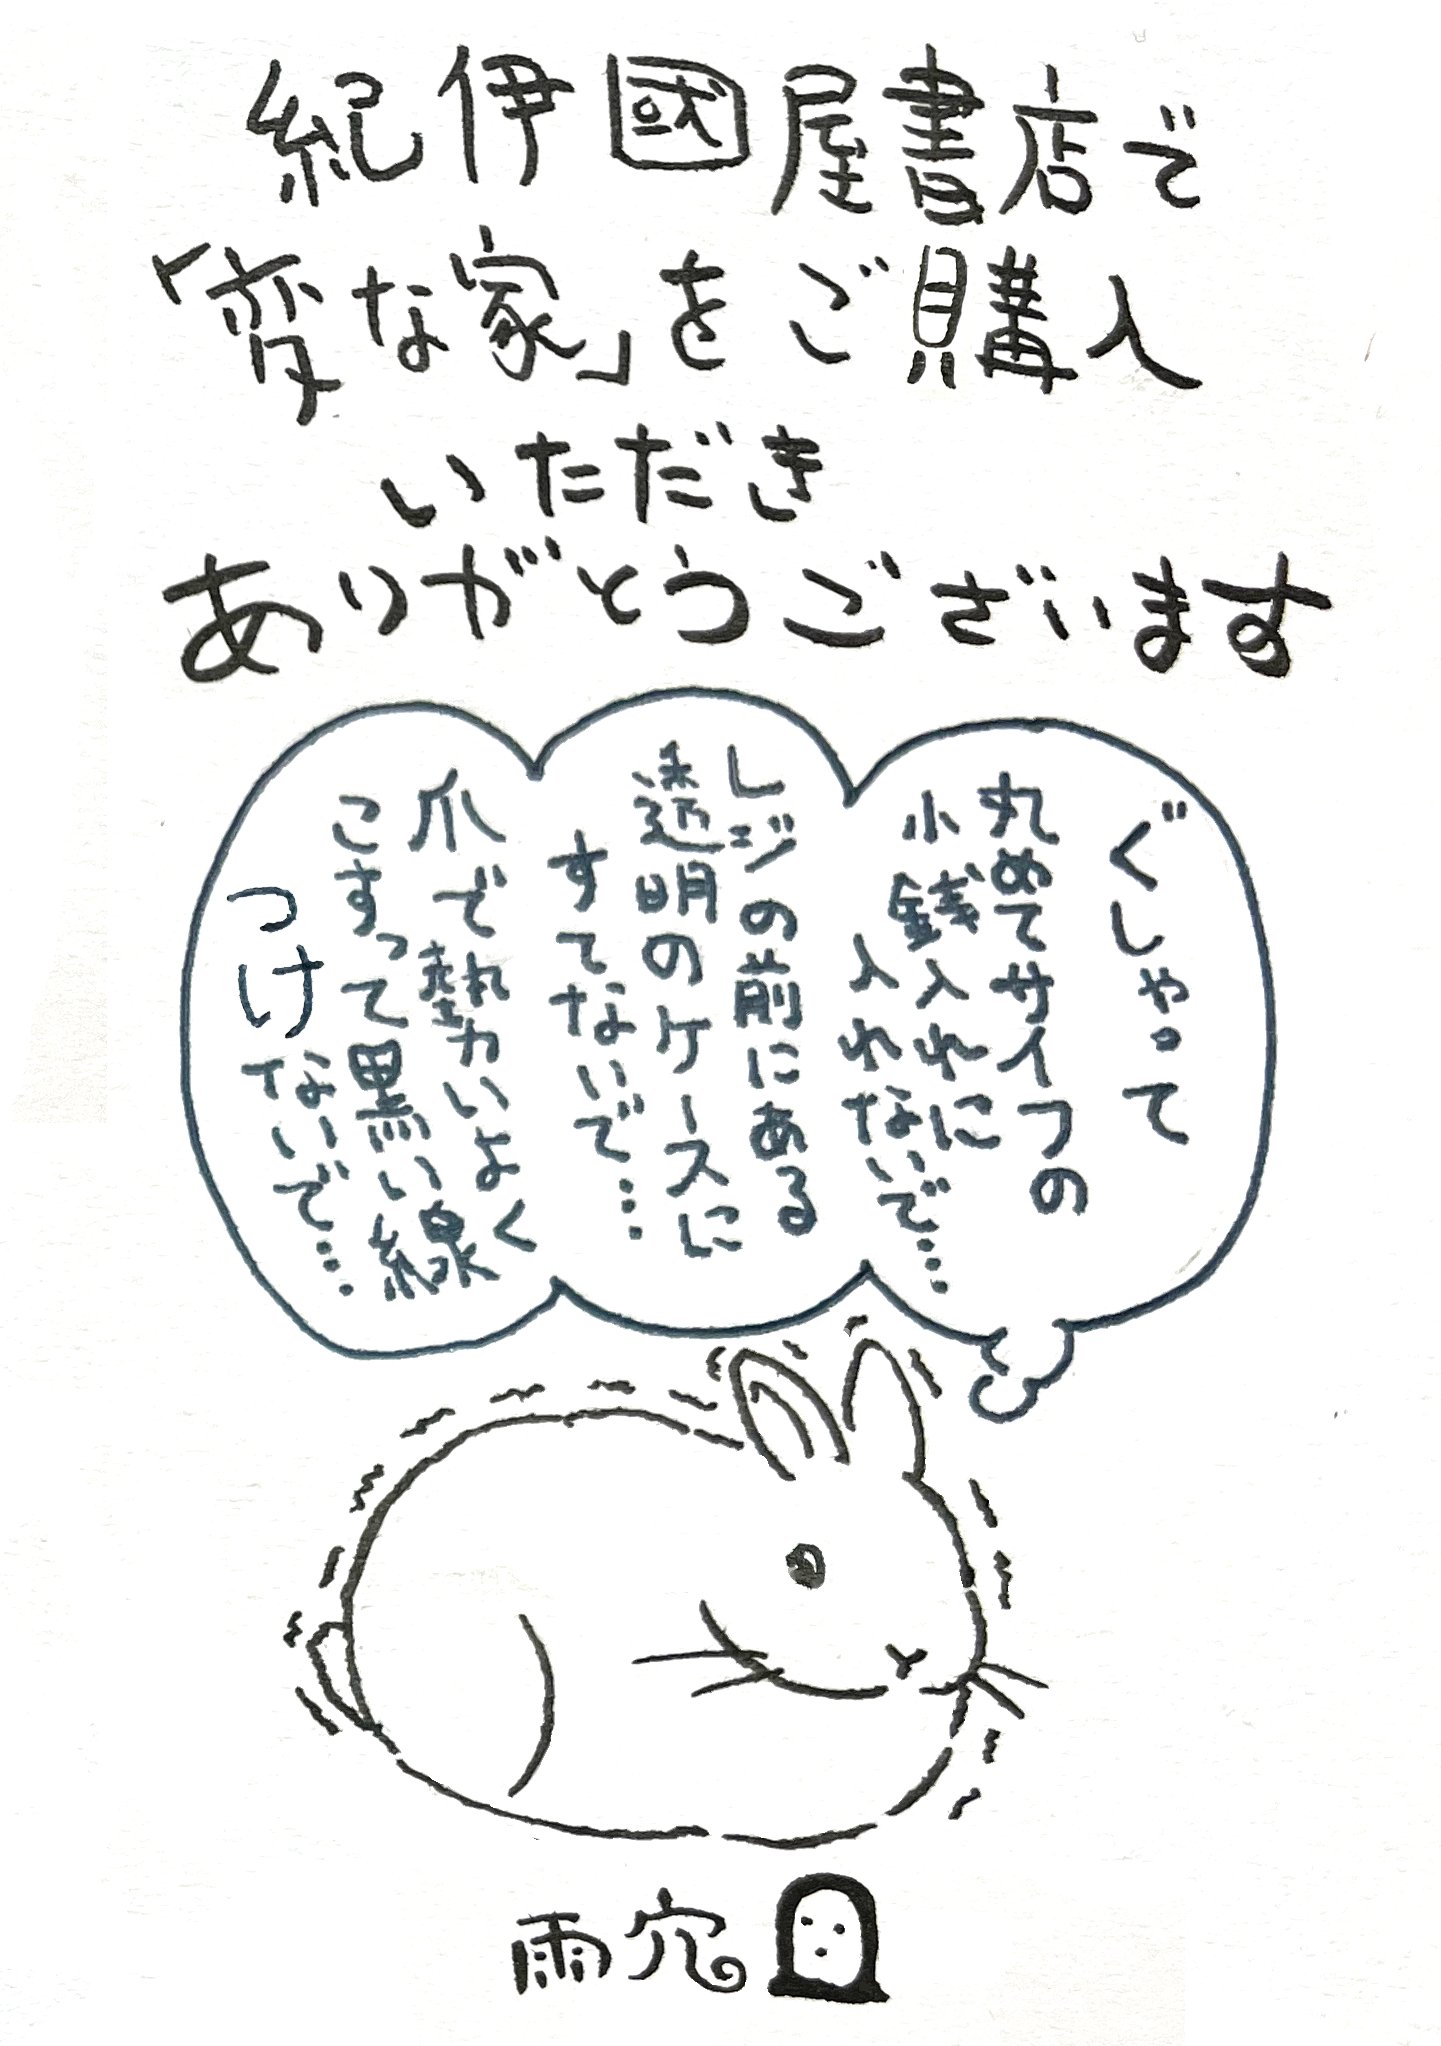 紀伊國屋書店で
「変な家」をご購入
いただき
ありがとうございます
ぐしゃって
丸めてサイフの
小銭入れに
入れないで…
レジの前にある
透明のケースに
すてないで…
爪で熱いよく
こすって黒い線
つけないで…
雨穴